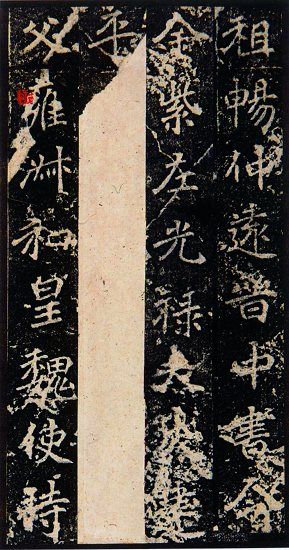 祖暢仲遠晉中書令
金紫左光祿大夫建
平
父雍淑和皇魏使持